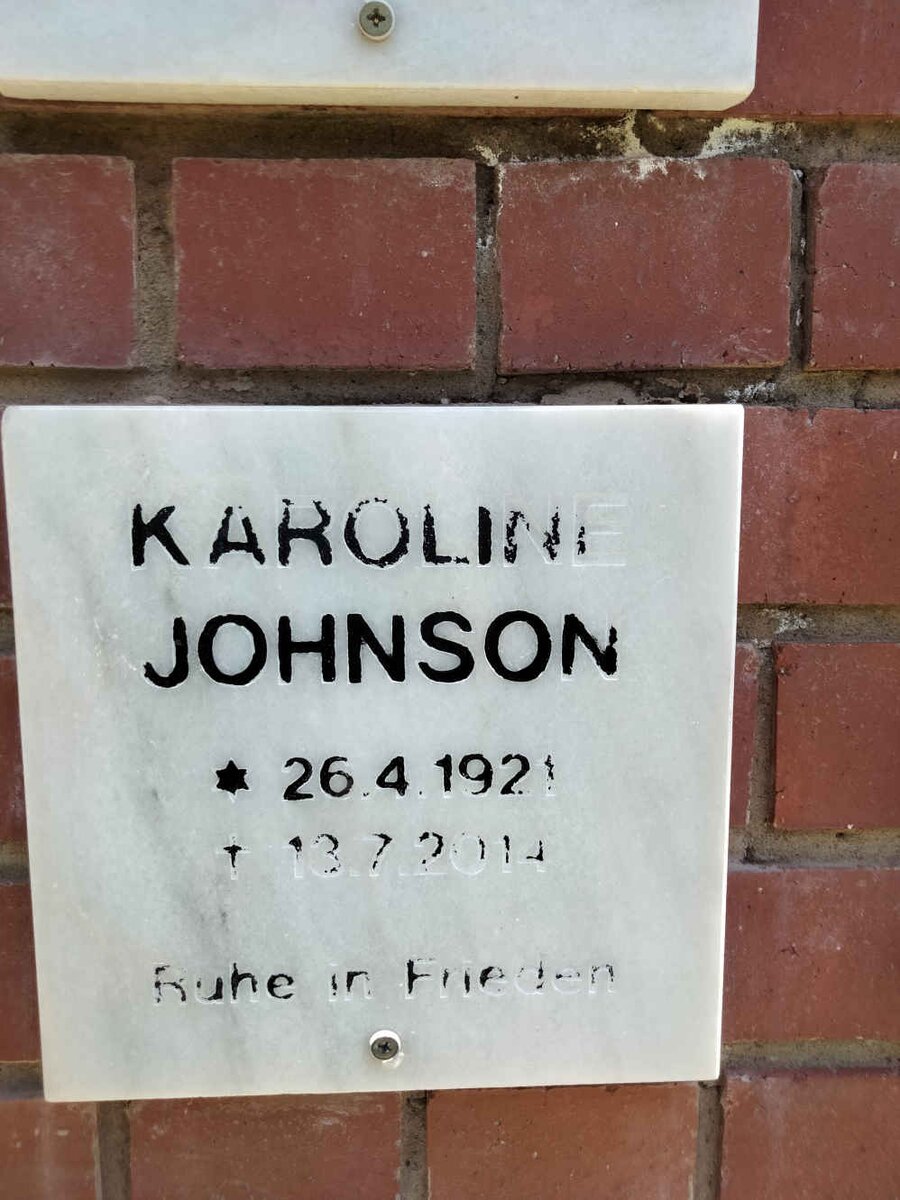 KAROLINE
JOHNSON
★ 26.4.1921
† 13.7.2014
Ruhe in Frieden